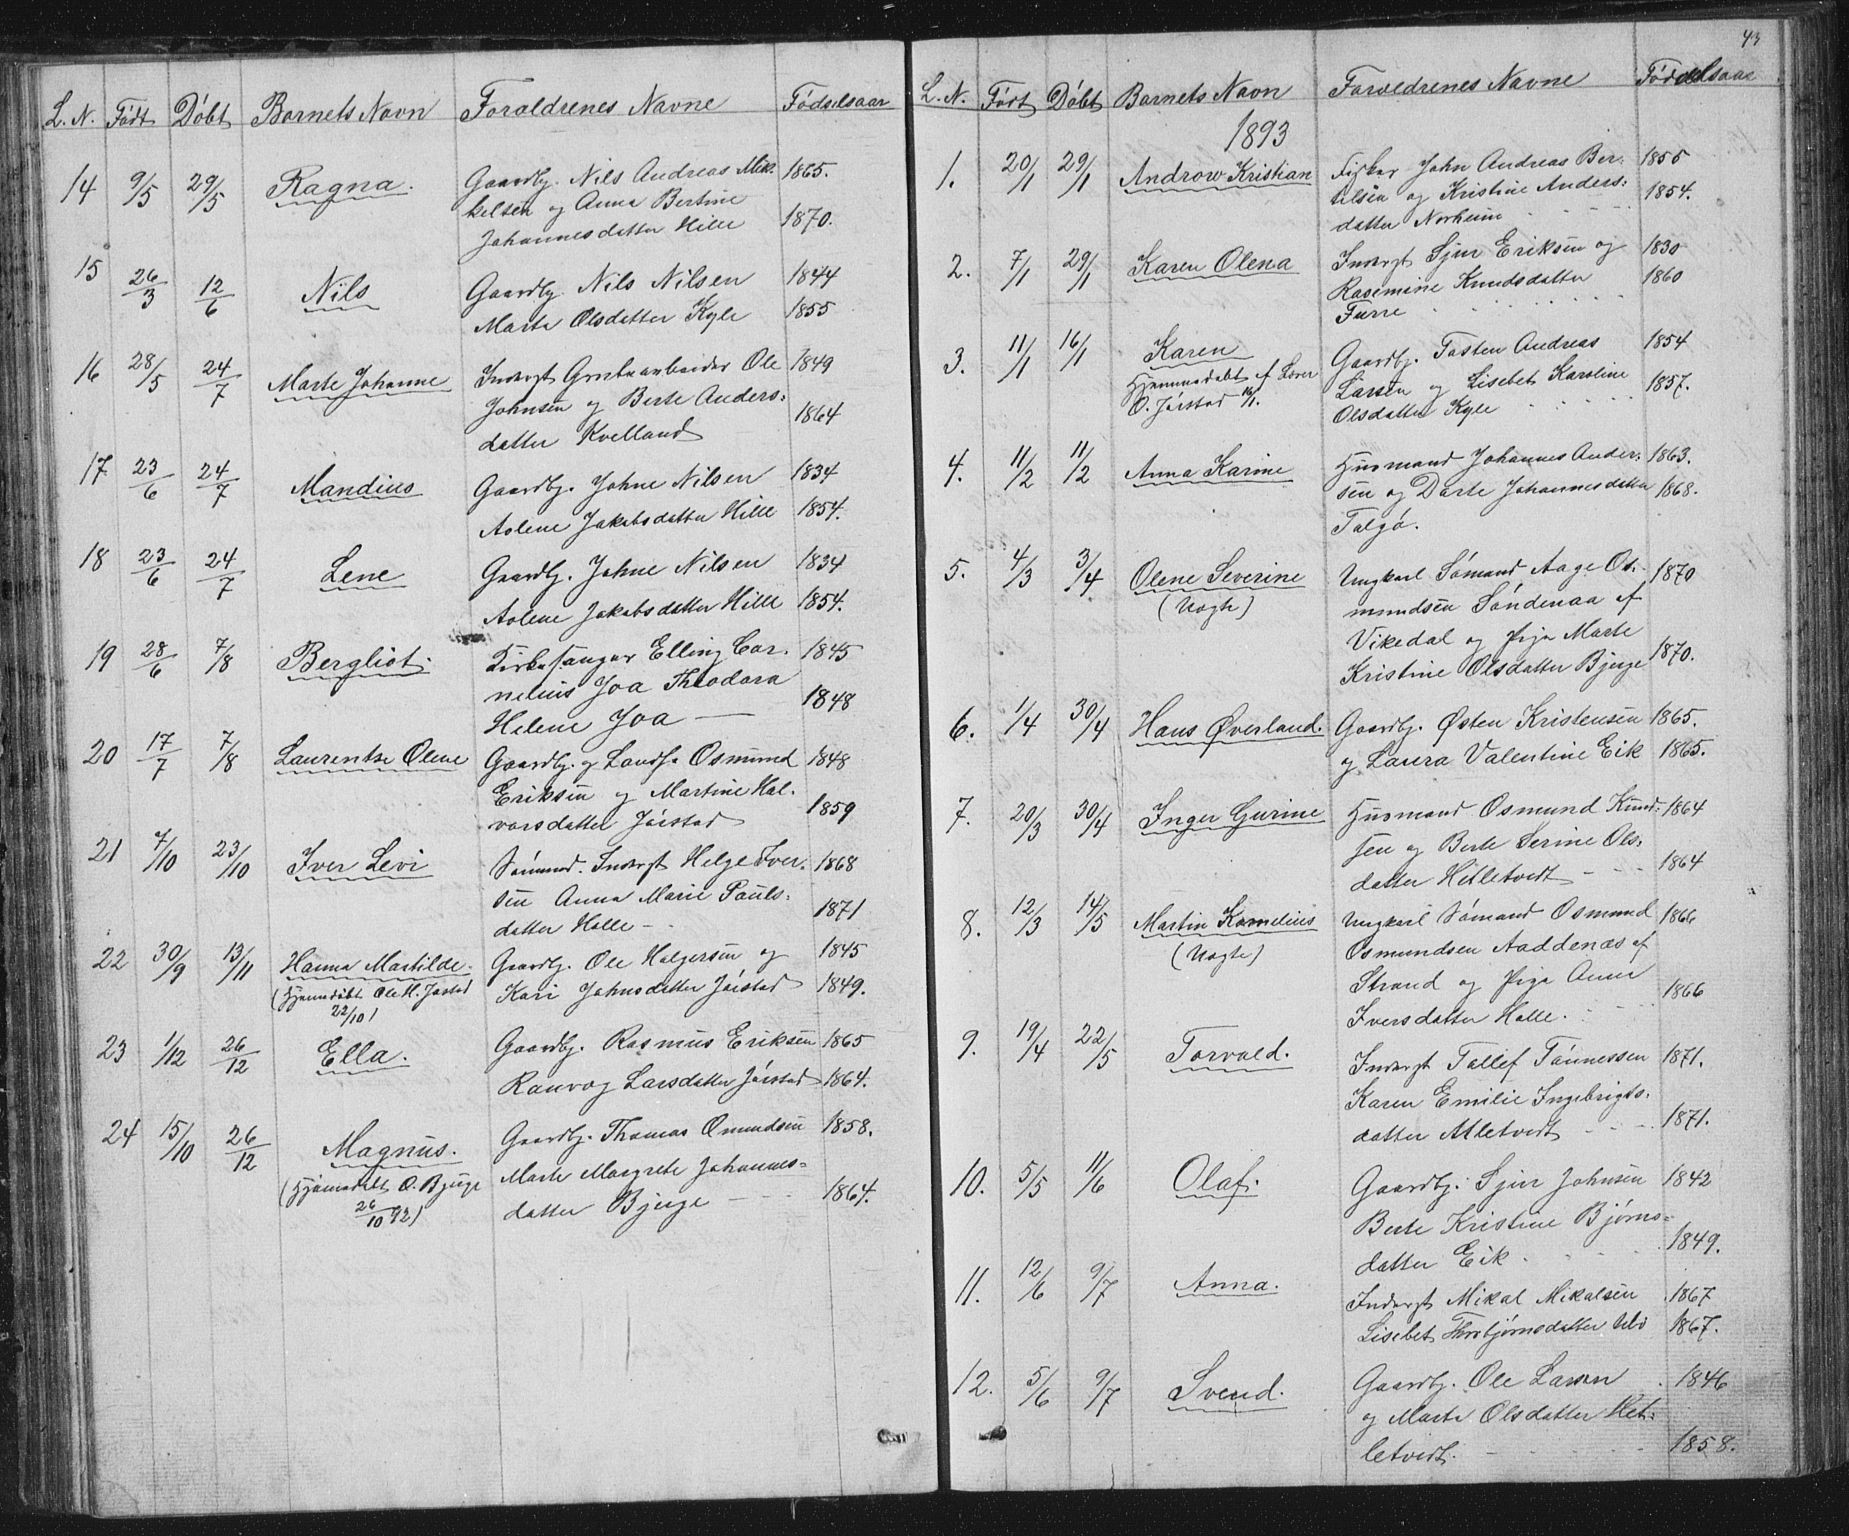 L. N. Født Døbt Barnets Navn Foræeldrenes Navne Fødselsaar
14 9/5 29/5 Ragna. Gaardbr. Nils Andreas Mik- 1865.
kelsen og Anna Bertine
Johannesdatter Hille 1870.
15 26/3 12/6 Nils Gaardbr Nils Nilsen 1844
Marta Olsdatter Kyle 1855
16 28/5 24/7 Marte Johanne Inderst Grubearbeider Ole 1849
Johnsen og Berte Anders-
datter Kvelland 1864
17 23/6 24/7 Mandius Gaardbr. Johne Nilsen 1834
Aolene Jakobsdatter Hille 1854.
18 23/6 24/7 Lene Gaardbr. Johne Nilsen 1834
Aolene Jakobsdatter Hille 1854.
19 28/6 7/8 Bergliot. Kirkesanger Elling Cor- 1845
nelius Joa Theodora
Helene Joa 1848
20 17/7 7/8 Laurentse Olene Gaardbr. og Landh. Osmund 1848
Eriksen og Martine Hal-
vorsdatter Jørstad 1859
21 7/10 23/10 Iver Levi Sømand. Inderst Helge Iver- 1868
sen Anna Marie Pauls-
datter Halle - 1871
22 30/9 13/11 Hanna Martilde. Gaardbr. Ole Helgersen og 1845
(Hjemmedøbt Ole H. Jørstad Kari Johnsdatter Jørstad 1849.
22/10)
23 1/12 26/12 Ella. Gaardbr. Rasmus Eriksen 1865
Ranvog Larsdatter Jørstad 1864.
24 15/10 26/12 Magnus. Gaardbr. Thomas Omundsen 1858.
(Hjemmedøbt O. Bjerge Marte Margrete Johannes-
26/10 92) datter Bjerge 1864.
43
L. N. Født Døbt Barnets Navn Forældrenes Navne Fødselsaar
1893
1. 20/1 29/1 Androw Kristian Fisker John Andreas Ber- 1855
tilsen og Kristine Anders- 1854.
datter Norheim
2. 7/1 29/1 Karen Olena Inderst Sjur Eriksen og 1830
Rasemine Knudsdatter 1860
Furre
3. 11/1 16/1 Karen Gaardbr. Tosten Andreas 1854
Hjemmedøbt af Lærer Larsen og Lisebet Karoline 1857.
O. Jørstad 16/1. Olsdatter Kyle
4. 11/2 11/2 Anna Karine Husmand Johannes Ander- 1863.
sen og Dorte Johannesdatter 1868.
Talgø.
5. 4/3 3/4 Olene Severine Ungkarl Sømand Aage Os- 1870
(Uægte) mundsen Søndenaa af
Vikedal og Pige Marte
Kristine Olsdatter Bjerge 1870.
6. 1/4 30/4 Hans Øverland. Gaardbr. Østen Kristensen 1865.
og Laura Valentine Eik 1865.
7. 20/3 30/4 Inger Gurine Husmand Osmund Knud- 1864
sen og Berte Serine Ols-
datter Hetletvedt 1864
8. 12/3 14/5 Martin Kornelius Ungkarl Sømand Osmund 1866
(Uægte) Osmundsen Aaddenæs af
Strand og Pige Anne 1866
Iversdatter Halle.
9. 19/4 22/5 Torvald. Inderst Tollef Tønnessen 1871.
Karen Emilie Ingebrigts-
datter Hetletvedt 1871.
10. 5/5 11/6 Olaf. Gaardbr. Sjur Johnsen 1842
Berte Kristine Bjørns-
datter Eik. 1849.
11. 12/6 9/7 Anna. Inderst Mikal Mikalsen 1867
Lisebet Thorbjørnsdatter 1867.
12. 5/6 9/7 Svend. Gaardbr. Ole Larsen 1846
og Marta Olsdatter Het-
letvedt. 1858.